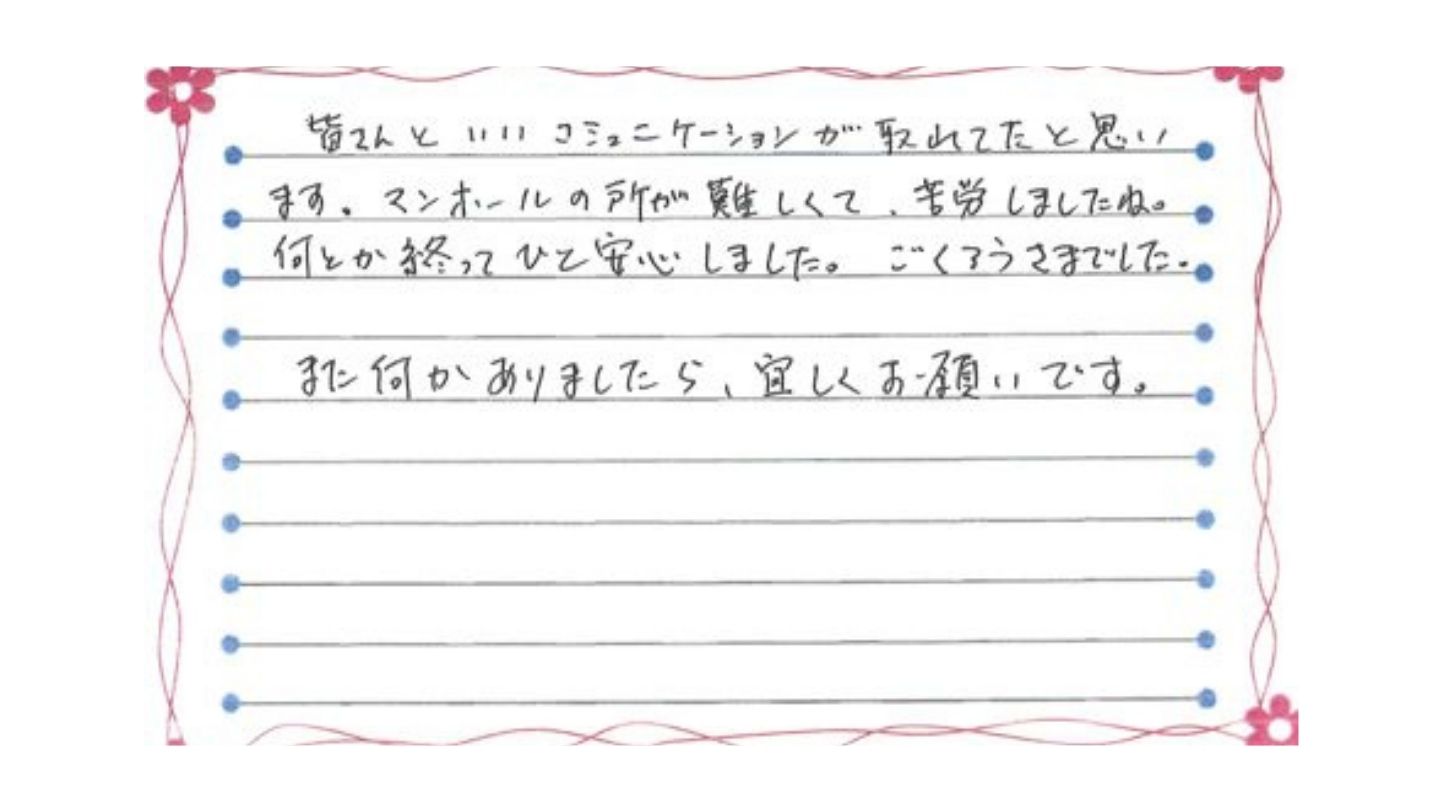 皆さんといいコミュニケーションが取れてたと思い
ます。マンホールの所が難しくて、苦労しましたね。
何とか終ってひと安心しました。ごくろうさまでした.
また何かありましたら、宜しくお願いです。